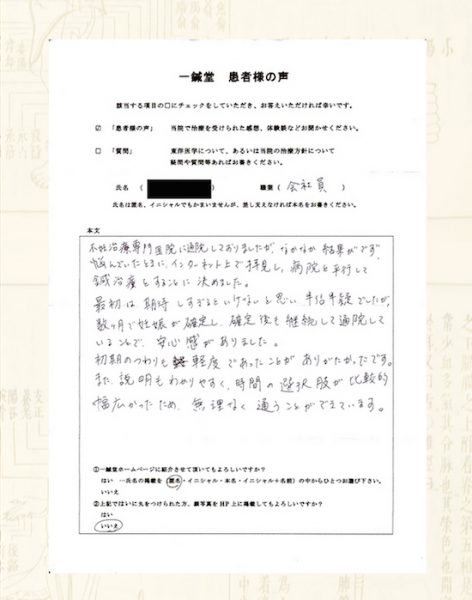 一鍼堂 患者様の声
該当する項目の□にチェックをしていただき、お答えいただければ幸いです。
☑ 「患者様の声」 当院で治療を受けられた感想、体験談などお聞かせください。
□ 「質問」 東洋医学について、あるいは当院の治療方針について
疑問や質問等あればお書きください。
氏名 ( ) 職業 ( 会社員 )
氏名は匿名、イニシャルでもかまいませんが、差し支えなければ本名をお書きください。
本文
不妊治療専門医院に通院しておりましたが、なかなか結果がでず、
悩んでいたときに、インターネット上で拝見し、病院と平行して
鍼治療をすることに決めました。
最初は期待しすぎるといけないと思い半信半疑でしたが、
数ヶ月で妊娠が確定し、確定後も継続して通院して
いることで、安心感がありました。
初期のつわりも軽度であったことがありがたかったです。
また、説明もわかりやすく、時間の選択肢が比較的
幅広かったため、無理なく通うことができています。
①一鍼堂ホームページに紹介させて頂いてもよろしいですか?
はい ―氏名の掲載を(匿名・イニシャル・本名・イニシャル+名前)の中からひとつお選び下さい。
いいえ
②上記ではいに丸をつけられた方、顔写真をHP上に掲載してもよろしいですか?
はい
いいえ